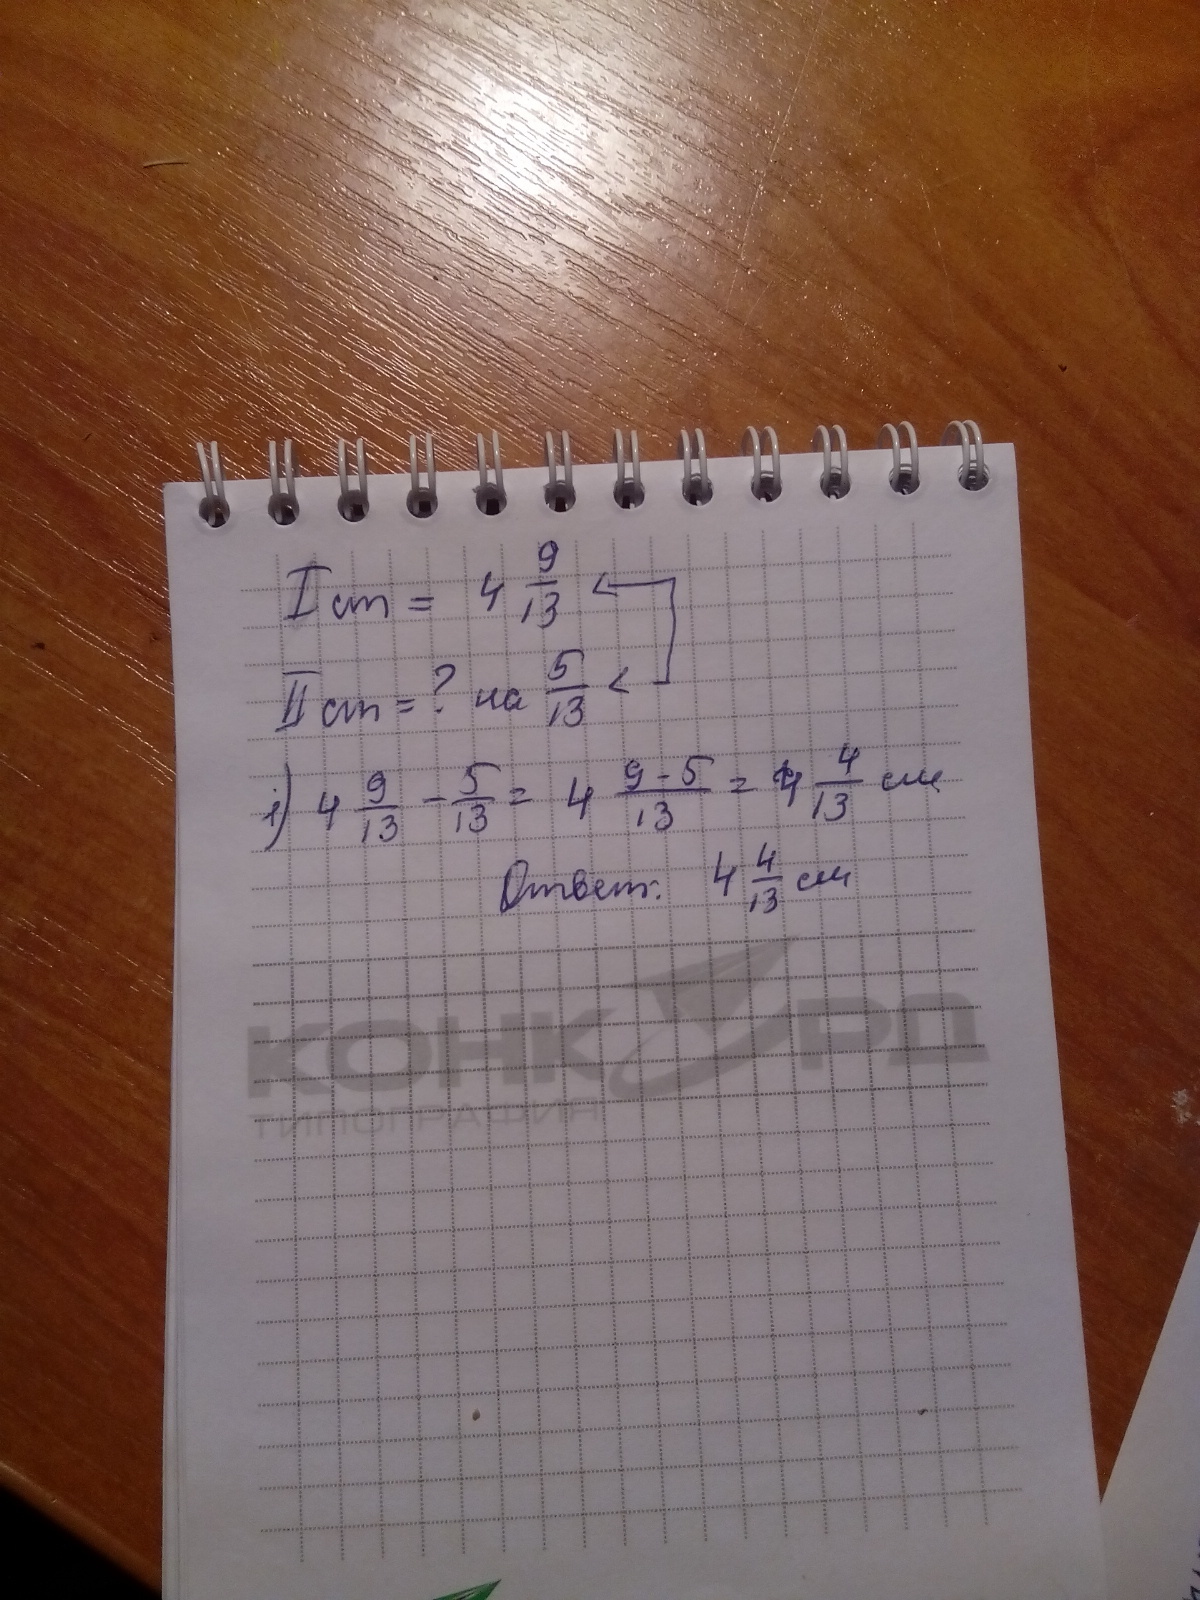 I ст = 4 9/13 <
II ст = ? на 5/13 <
1) 4 9/13 - 5/13 = 4 9-5/13 = 4 4/13 см
Ответ: 4 4/13 см
КОНКОРД
ТИПОГРАФИЯ